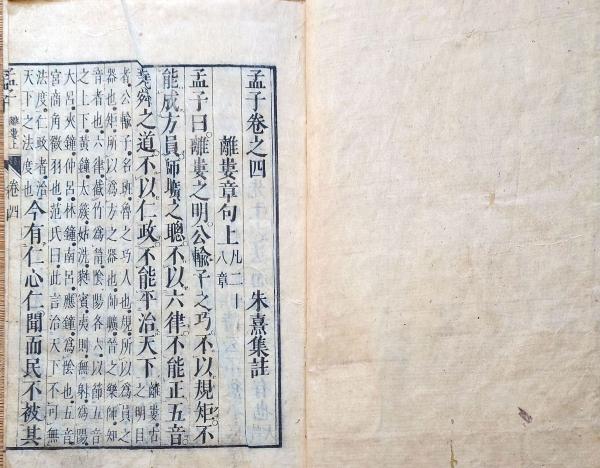 孟子卷之四 朱熹集註
離婁章句上 凡二十八章
孟子曰離婁之明公輸子之巧不以規矩不
能成方員師曠之聰不以六律不能正五音
堯舜之道不以仁政不能平治天下 離婁古
之明目
者公輸子名班魯之巧人也規所以爲員之
器也矩所以爲方之器也師曠晉之樂師知
音者也六律截竹爲筩陰陽各六以節五音
之上下黃鐘太蔟姑洗蕤賓夷則無射爲陽
大呂夾鐘仲呂林鐘南呂應鐘爲陰也五音
宮商角徵羽也范氏曰此言治天下不可無
法度仁政者治
天下之法度也 今有仁心仁聞而民不被其
孟子 離婁上 卷四